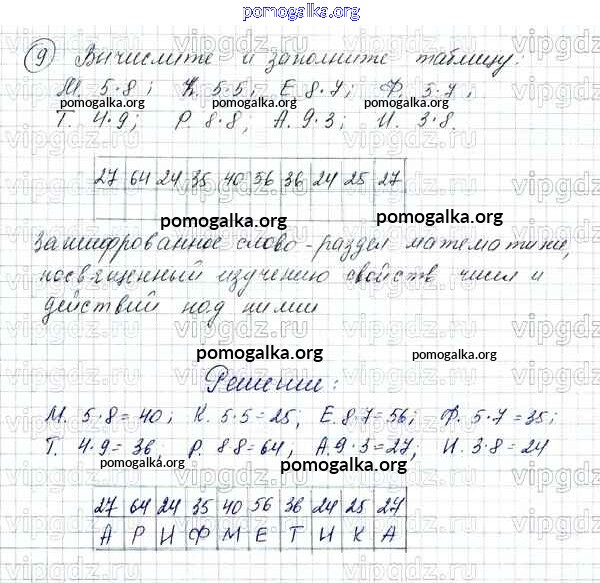 pomogalka.org
9 Вычислите и заполните таблицу:
М. 5·8; К. 5·5; Е. 8·7; Ф. 5·7;
pomogalka.org pomogalka.org pomogalka.org
Т. 4·9; Р. 8·8; А. 9·3; И. 3·8.
27 64 24 35 40 56 36 24 25 27
pomogalka.org pomogalka.org
Зашифрованное слово - раздел математики,
посвященный изучению свойств чисел и
действий над ними
pomogalka.org pomogalka.org
Решение:
М. 5·8=40; К. 5·5=25; Е. 8·7=56; Ф. 5·7=35;
Т. 4·9=36, Р. 8·8=64, А. 9·3=27; И. 3·8=24
pomogalka.org pomogalka.org pomogalka.org
27 64 24 35 40 56 36 24 25 27
А Р И Ф М Е Т И К А